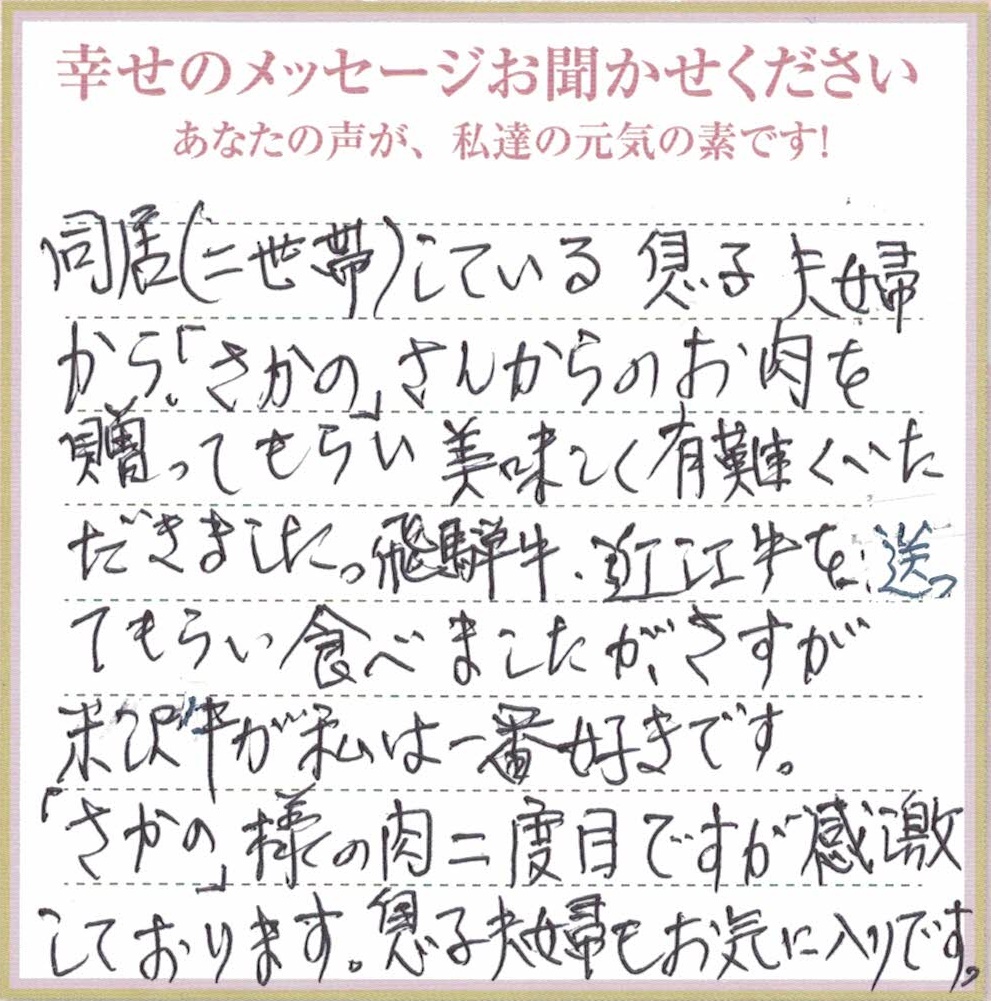 幸せのメッセージお聞かせください
あなたの声が、私達の元気の素です!
同居(二世帯)している息子夫婦
から「さかの」さんからのお肉を
贈ってもらい美味しく有難くいた
だきました。飛騨牛、近江牛を送っ
てもらい食べましたが、さすが
米沢牛が私は一番好きです。
「さかの」様の肉二度目ですが感激
しております。息子夫婦もお気に入りです。